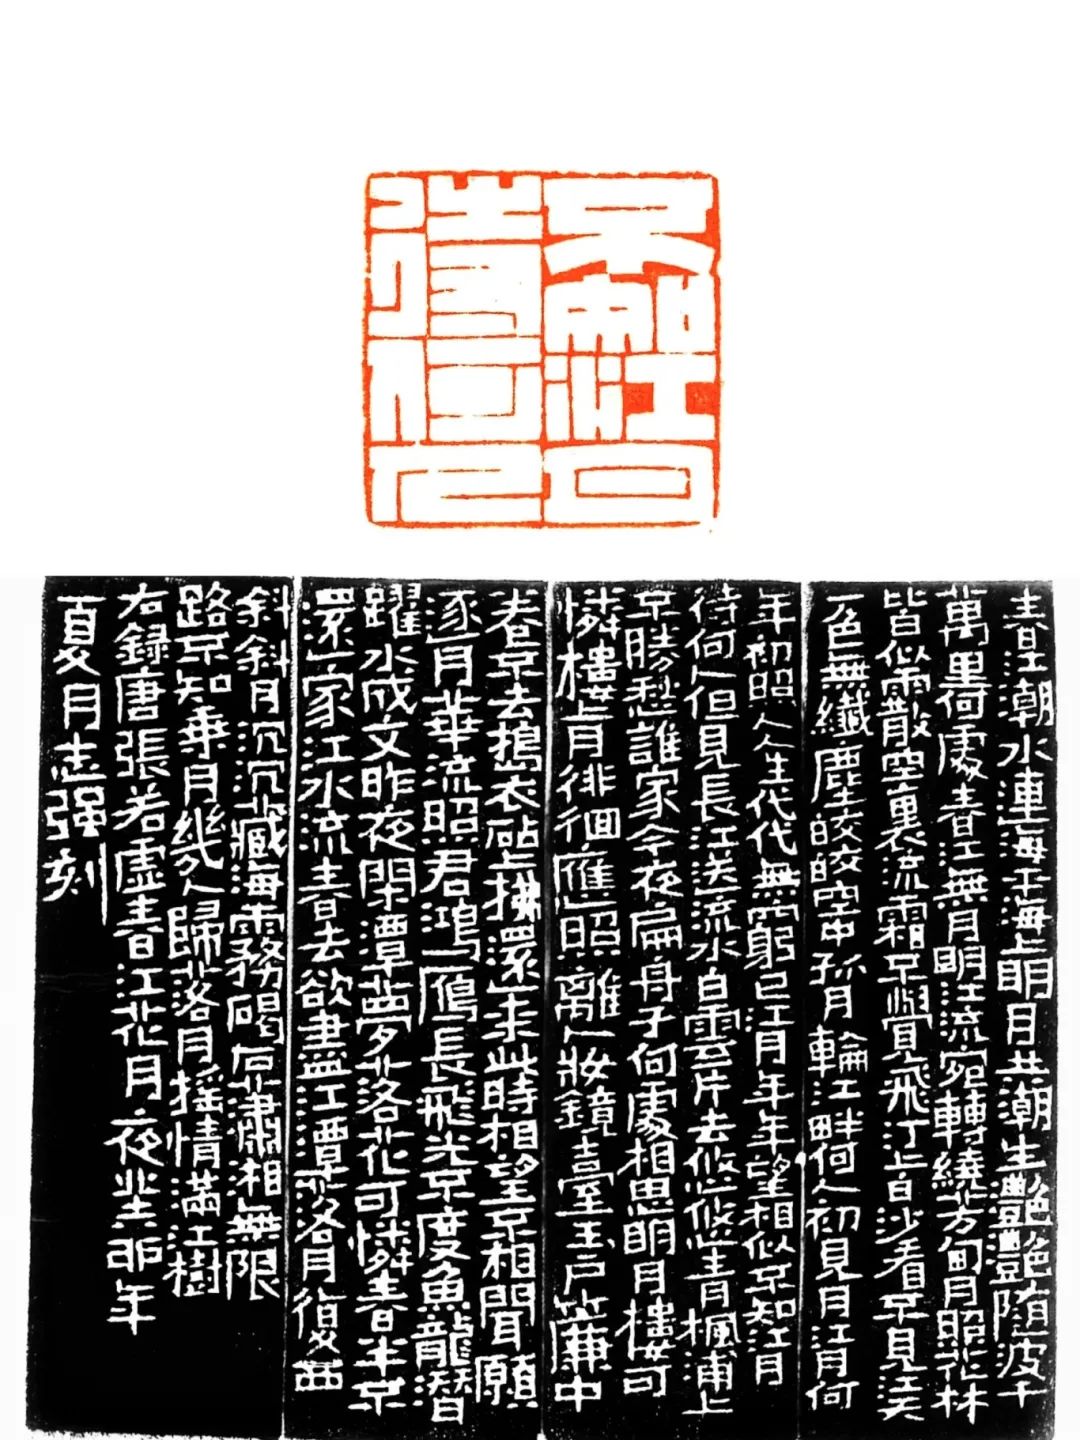 春江潮水連海平海上明月共潮生灩灩隨波千
萬里何處春江無月明江流宛轉繞芳甸月照花林
皆似霰空裏流霜不覺飛汀上白沙看不見江天
一色無纖塵皎皎空中孤月輪江畔何人初見月江月何
年初照人人生代代無窮已江月年年望相似不知江月
待何人但見長江送流水白雲一片去悠悠青楓浦上
不勝愁誰家今夜扁舟子何處相思明月樓可
憐樓上月徘徊應照離人妝鏡臺玉戶簾中
卷不去搗衣砧上拂還來此時相望不相聞願
逐月華流照君鴻雁長飛光不度魚龍潛
躍水成文昨夜閑潭夢落花可憐春半不
還家江水流春去欲盡江潭落月復西
斜斜月沉沉藏海霧碣石瀟湘無限
路不知乘月幾人歸落月搖情滿江樹
右錄唐張若虛春江花月夜辛卯年
夏月志强刻